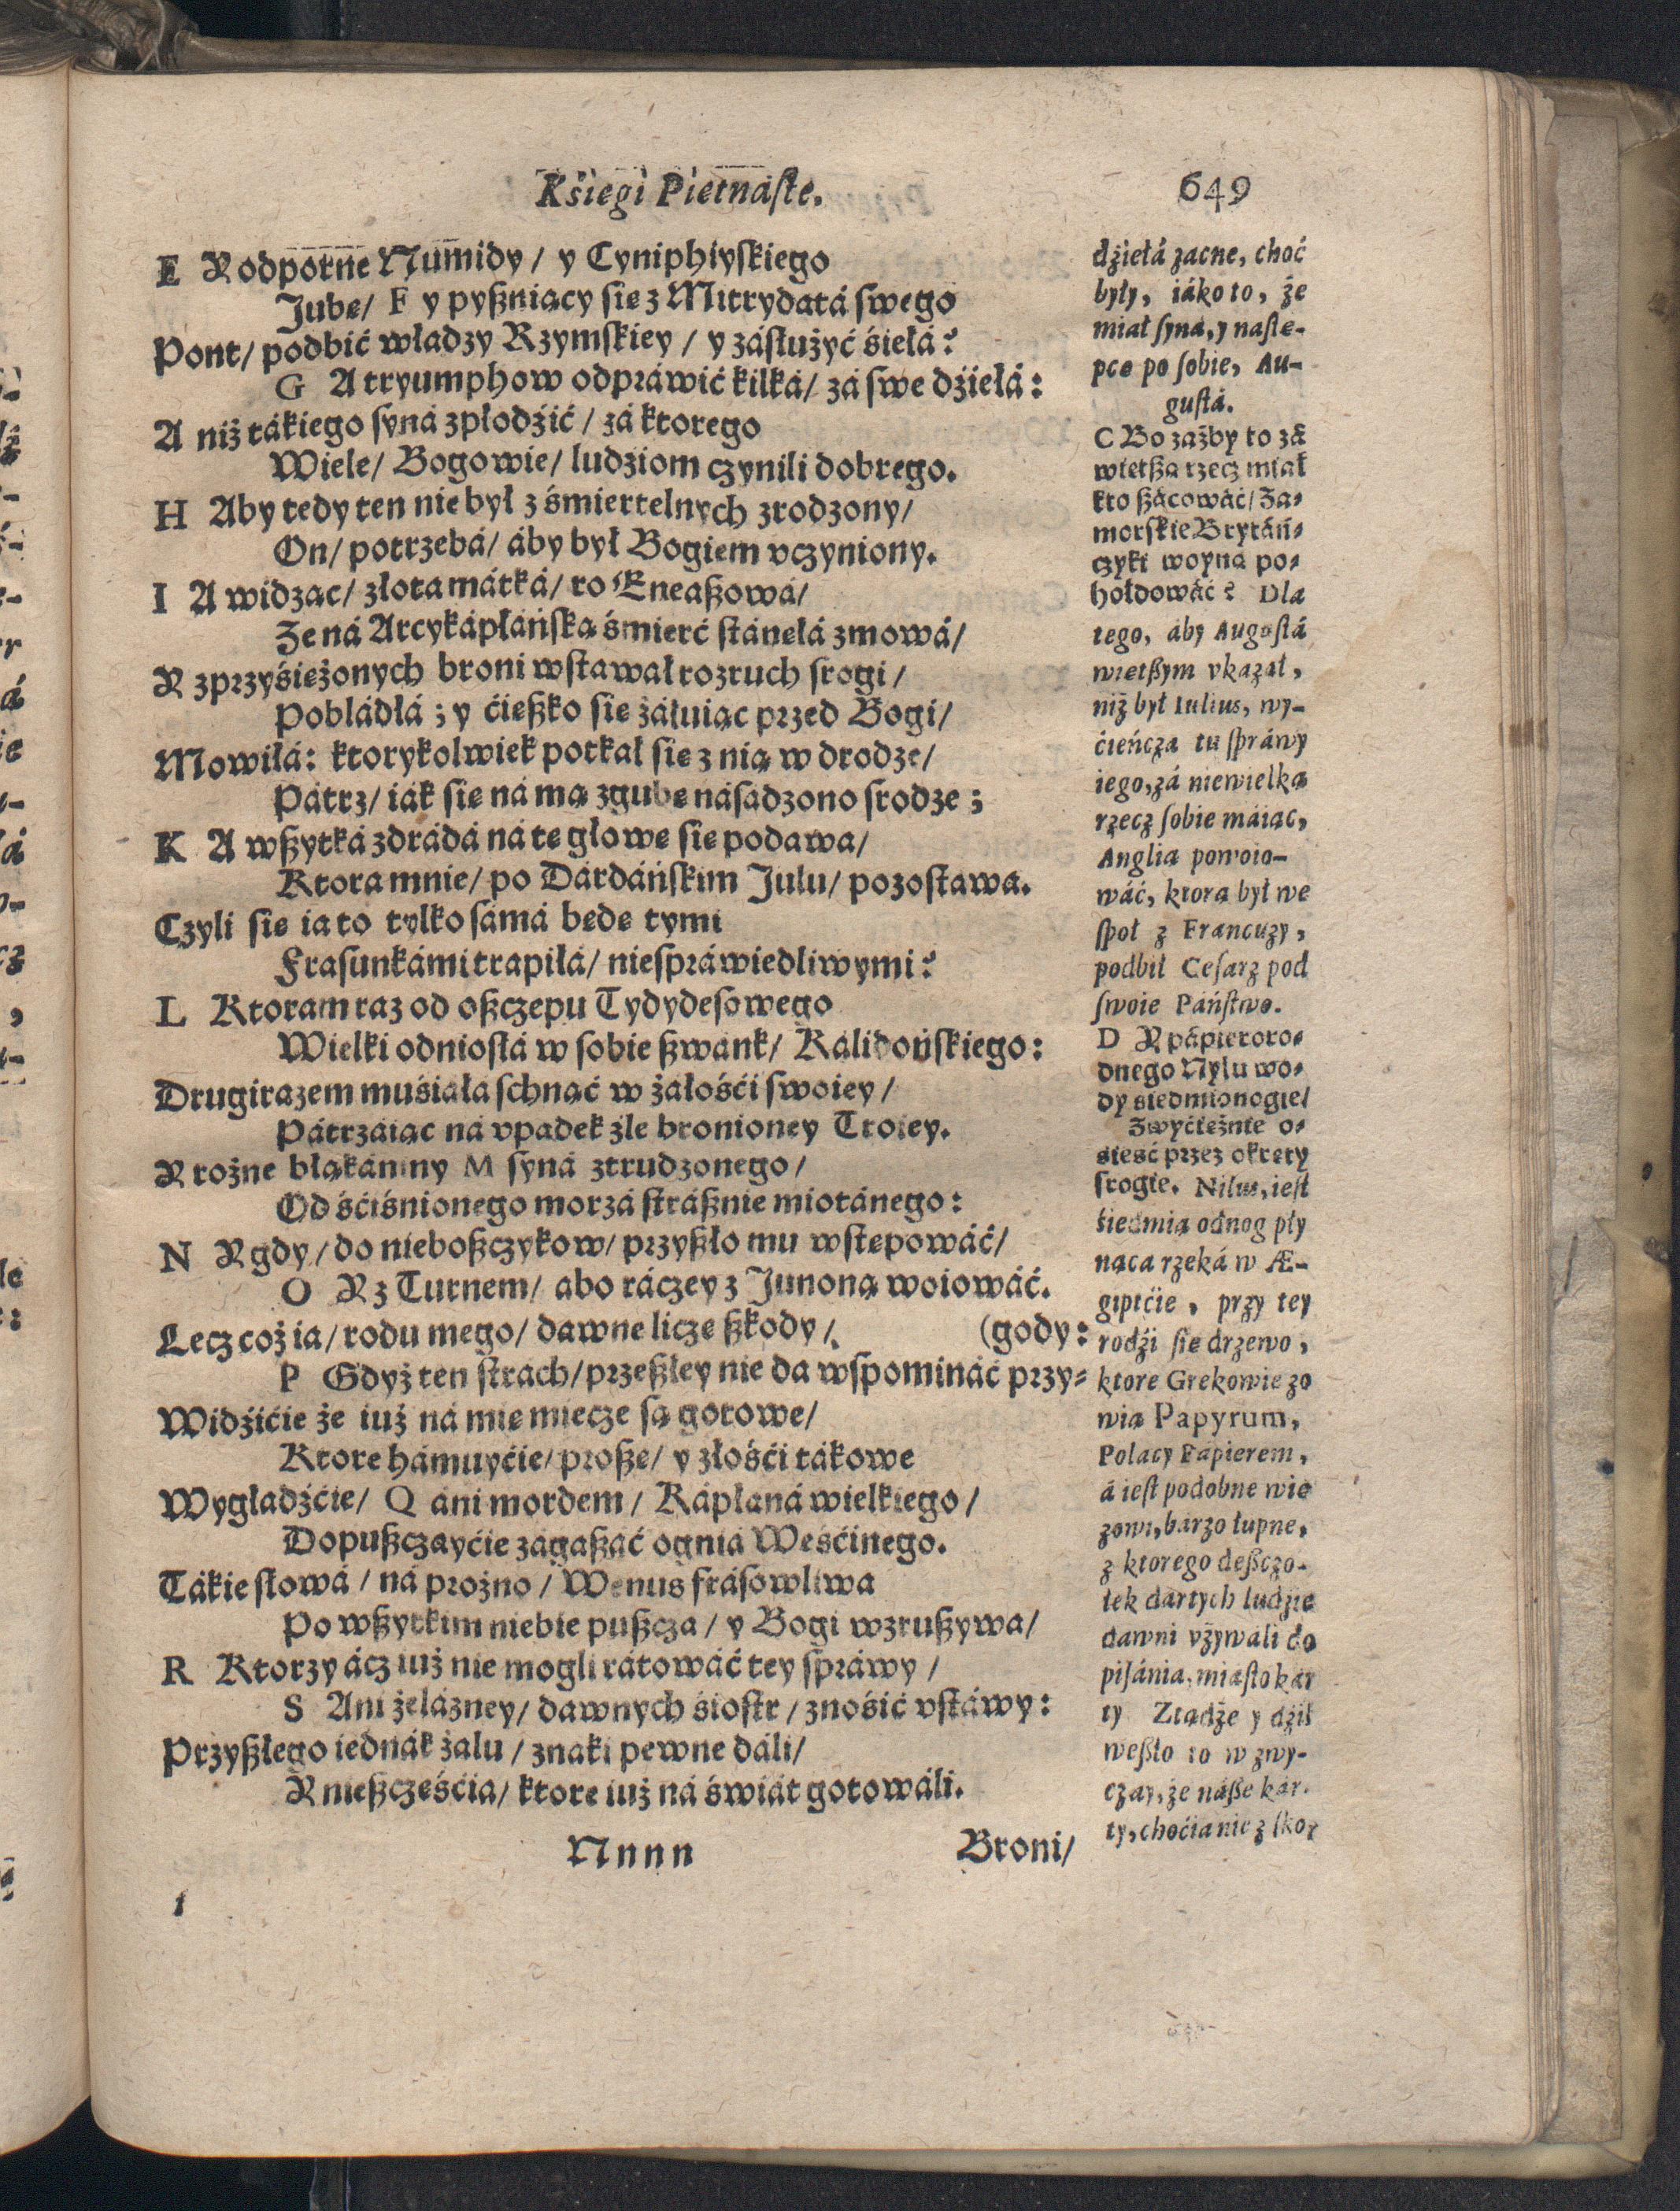 Księgi Pietnaste. 649
E Y odporne Numidy / y Cyniphiyskiego
Jubę / F y pyßniący się z Mitrydatá swego
Pont / podbić władzy Rzymskiey / y zásłużyć śiełá?
G A tryumphow odpráwić kilká / zá swe dźiełá:
A niż tákiego syná zpłodźić / zá ktorego
Wiele / Bogowie / ludziom czynili dobrego.
H Aby tedy ten nie był z śmiertelnych zrodzony /
On / potrzebá / áby był Bogiem vczyniony.
I A widząc / złota mátká / to Eneaßowá /
Ze ná Arcykápłáńską śmierć stánełá zmowá /
Y zprzyśiężonych broni wstawał rozruch srogi /
Pobládłá ; y ćięßko się żáłuiąc przed Bogi /
Mowiłá: ktorykolwiek potkał się z nią w drodze /
Pátrz / iák się ná mą zgubę násadzono srodze ;
K A wßytká zdrádá ná tę głowę się podawa /
Ktora mnie / po Dárdáńskim Julu / pozostawa.
Czyli się ia to tylko sámá będę tymi
Frasunkámi trapiłá / niespráwiedliwymi?
L Ktoram raz od oßczepu Tydydesowego
Wielki odniosłá w sobie ßwank / Kálidońskiego:
Drugi razem muśiała schnąć w żałośći swoiey /
Pátrzáiąc ná vpadek źle bronioney Troiey.
Y rożne błąkániny M syná ztrudzonego /
Od śćiśnionego morzá stráßnie miotánego:
N Y gdy / do nieboßczykow / przyßło mu wstępowáć /
O Y z Turnem / abo ráczey z Junoną woiowáć.
Lecz coż ia / rodu mego / dawne liczę ßkody / (gody:
P Gdyż ten strach / przeßłey nie da wspomináć przy-
Widźićie że iuż ná mię miecze są gotowe /
Ktore hámuyćie / proßę / y złośći tákowe
Wygładźćie / Q áni mordem / Kápłaná wielkiego /
Dopußczayćie zágaßáć ogniá Weśćinego.
Tákie słowá / ná prożno / Wenus frásowliwa
Po wßytkim niebie pußcza / y Bogi wzrußywa /
R Ktorzy ácz iuż nie mogli rátowáć tey spráwy /
S Ani żelázney / dawnych śiostr / znośić vstáwy:
Przyßłego iednák żalu / znaki pewne dáli /
Y nießczęśćia / ktore iuż ná świát gotowáli.
Nnnn Broni /
dźiełá zacne, choć
były, iáko to, że
miał syná, y nastę-
pcę po sobie, Au-
gustá.
C Bo zażby to zá
więtßą rzecz miał
kto ßácowáć / Za-
morskie Brytáń-
czyki woyną po-
hołdowáć? Dla
tego, áby Augustá
więtßym vkazał,
niż był Iulius, wy-
ćieńcza tu spráwy
iego, zá niewielką
rzecz sobie máiąc,
Anglią powoio-
wáć, ktorą był we
społ z Francuzy,
podbił Cesarz pod
swoie Páństwo.
D Y pápieroro-
dnego Nylu wo-
dy siedmionogie /
Zwyćiężnie o-
sieść przez okręty
srogie. Nilus, iest
śiedmią odnog pły
nąca rzeká w Æ-
giptćie, przy tey
rodźi się drzewo,
ktore Grekowie zo
wią Papyrum,
Polacy Papierem,
á iest podobne wię
zowi, bárzo łupne,
z ktorego deßczo-
łek dartych ludzie
dawni vżywáli do
pisánia, miásto kár
ty Ztądże y dźiś
weßło to w zwy-
czay, że náße kár-
ty, choćia nie z skor